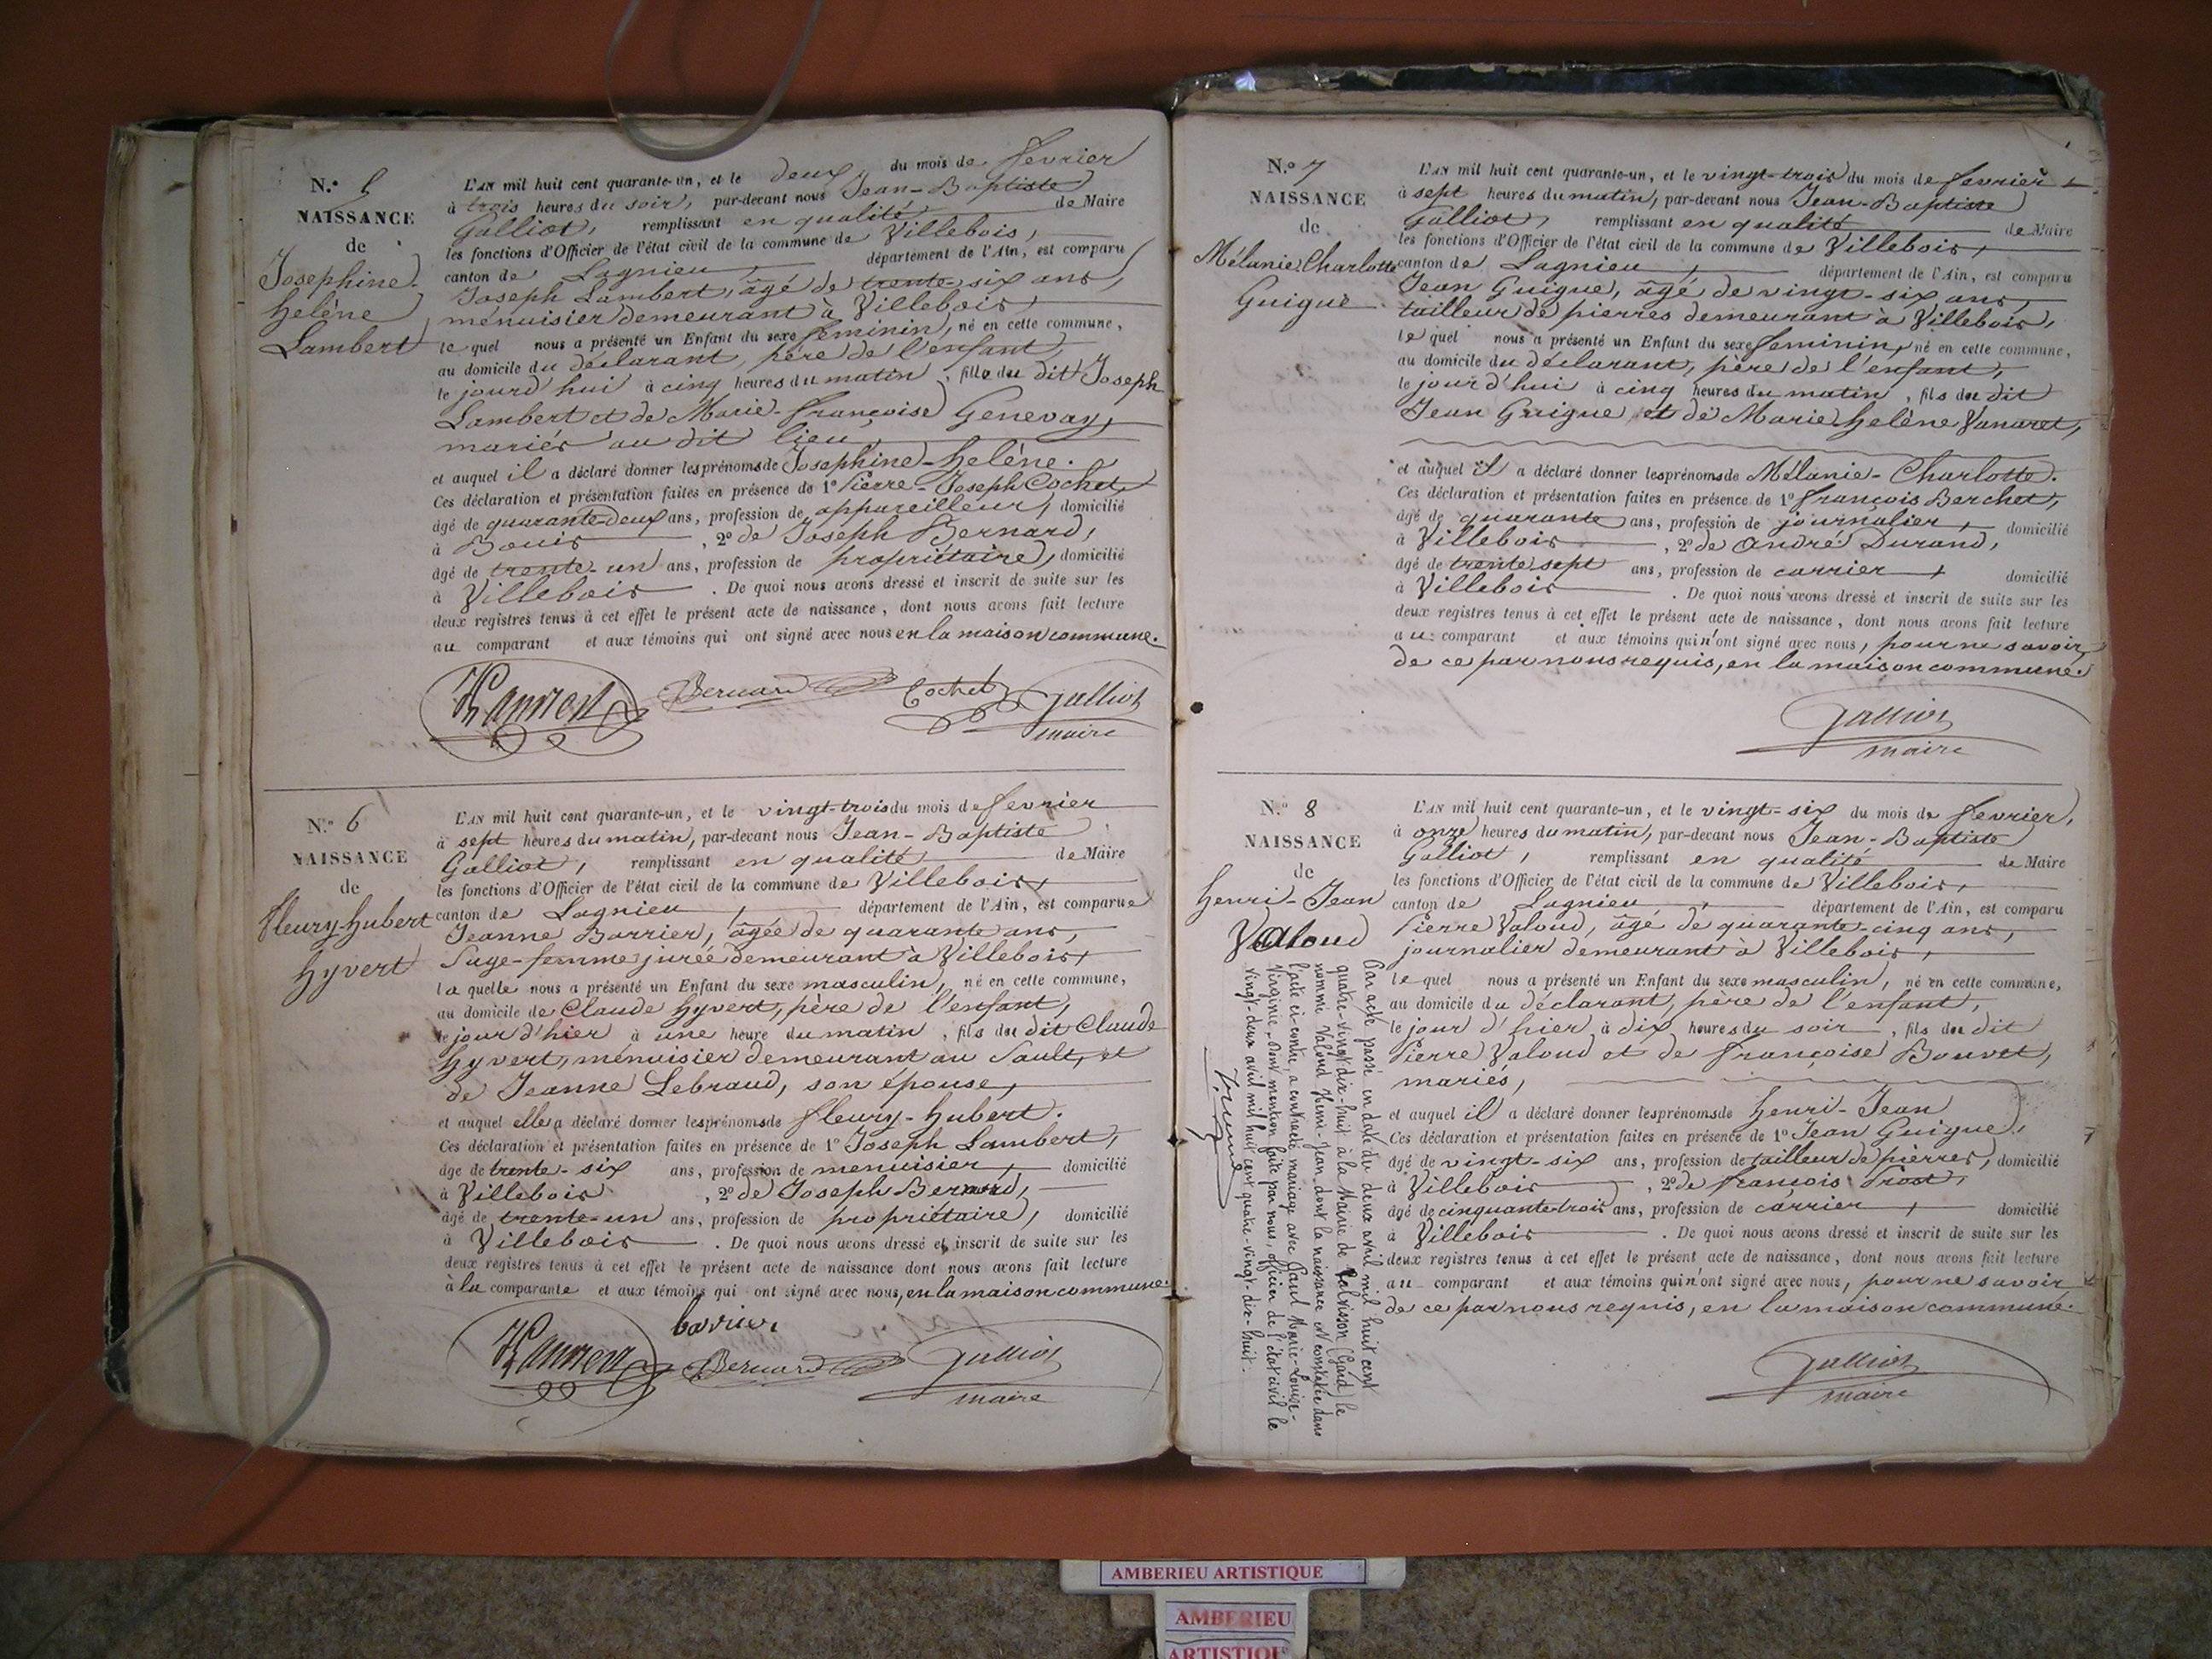 N.° 5
NAISSANCE
de
Josephine
helène
Lambert
L'AN mil huit cent quarante-un, et le deux du mois de fevrier
à trois heures du soir, par-devant nous Jean-Baptiste
Galliot, remplissant en qualité de Maire
les fonctions d'Officier de l'état civil de la commune de Villebois,
canton de Lagnieu, département de l'Ain, est comparu
Joseph Lambert, âgé de trente-six ans,
ménuisier demeurant à Villebois,
le quel nous a présenté un Enfant du sexe feminin, né en cette commune,
au domicile du déclarant, père de l'enfant,
le jourd'hui à cinq heures du matin, fille du dit Joseph
Lambert et de Marie-françoise Genevay,
mariés au dit lieu,
et auquel il a déclaré donner les prénoms de Josephine-helène.
Ces déclaration et présentation faites en présence de 1° Pierre-Joseph Cochet,
âgé de quarante-deux ans, profession de appareilleur, domicilié
à Bouis, 2° de Joseph Bernard,
âgé de trente-un ans, profession de propriétaire, domicilié
à Villebois. De quoi nous avons dressé et inscrit de suite sur les
deux registres tenus à cet effet le présent acte de naissance, dont nous avons fait lecture
au comparant et aux témoins qui ont signé avec nous en la maison commune.
Bernard Cochet Galliot
maire
N.° 6
NAISSANCE
de
fleury-hubert
hyvert
L'AN mil huit cent quarante-un, et le vingt-trois du mois de fevrier
à sept heures du matin, par-devant nous Jean-Baptiste
Galliot, remplissant en qualité de Maire
les fonctions d'Officier de l'état civil de la commune de Villebois,
canton de Lagnieu, département de l'Ain, est comparue
Jeanne Barrier, âgée de quarante ans,
Sage-femme jurée demeurant à Villebois,
la quelle nous a présenté un Enfant du sexe masculin, né en cette commune,
au domicile de Claude hyvert, père de l'enfant,
le jour d'hier à une heure du matin, fils du dit Claude
hyvert, ménuisier demeurant au Sault, et
de Jeanne Lebraud, son épouse,
et auquel elle a déclaré donner les prénoms de fleury-hubert.
Ces déclaration et présentation faites en présence de 1° Joseph Lambert,
âgé de trente-six ans, profession de menuisier, domicilié
à Villebois, 2° de Joseph Bernard,
âgé de trente-un ans, profession de propriétaire, domicilié
à Villebois. De quoi nous avons dressé et inscrit de suite sur les
deux registres tenus à cet effet le présent acte de naissance dont nous avons fait lecture
à la comparante et aux témoins qui ont signé avec nous, en la maison commune.
barrier
Bernard Galliot
maire
N.° 7
NAISSANCE
de
Mélanie Charlotte
Guigue
L'AN mil huit cent quarante-un, et le vingt-trois du mois de fevrier
à sept heures du matin, par-devant nous Jean-Baptiste
Galliot, remplissant en qualité de Maire
les fonctions d'Officier de l'état civil de la commune de Villebois,
canton de Lagnieu, département de l'Ain, est comparu
Jean Guigue, âgé de vingt-six ans,
tailleur de pierres demeurant à Villebois,
le quel nous a présenté un Enfant du sexe feminin, né en cette commune,
au domicile du déclarant, père de l'enfant,
le jour d'hui à cinq heures du matin, fils du dit
Jean Guigue et de Marie helène Vanaret,
et auquel il a déclaré donner les prénoms de Mélanie-Charlotte.
Ces déclaration et présentation faites en présence de 1° françois Berchet,
âgé de quarante ans, profession de journalier, domicilié
à Villebois, 2° de andré Durand,
âgé de trente sept ans, profession de carrier, domicilié
à Villebois. De quoi nous avons dressé et inscrit de suite sur les
deux registres tenus à cet effet le présent acte de naissance, dont nous avons fait lecture
au comparant et aux témoins qui n'ont signé avec nous, pour ne savoir,
de ce par nous requis, en la maison commune.
Galliot
maire
N.° 8
NAISSANCE
de
henri-Jean
Valoud
L'AN mil huit cent quarante-un, et le vingt-six du mois de fevrier,
à onze heures du matin, par-devant nous Jean-Baptiste
Galliot, remplissant en qualité de Maire
les fonctions d'Officier de l'état civil de la commune de Villebois,
canton de Lagnieu, département de l'Ain, est comparu
Pierre Valoud, âgé de quarante-cinq ans,
journalier demeurant à Villebois,
le quel nous a présenté un Enfant du sexe masculin, né en cette commune,
au domicile du déclarant, père de l'enfant,
le jour d'hier à dix heures du soir, fils du dit
Pierre Valoud et de françoise Bouvet,
mariés,
et auquel il a déclaré donner les prénoms de henri-Jean
Ces déclaration et présentation faites en présence de 1° Jean Guigue,
âgé de vingt-six ans, profession de tailleur de pierres, domicilié
à Villebois, 2° de françois Trost,
âgé de cinquante trois ans, profession de carrier, domicilié
à Villebois. De quoi nous avons dressé et inscrit de suite sur les
deux registres tenus à cet effet le présent acte de naissance, dont nous avons fait lecture
au comparant et aux témoins qui n'ont signé avec nous, pour ne savoir
de ce par nous requis, en la maison commune.
Galliot
maire
Par acte passé en date du deux avril mil huit cent
quatre-vingt-dix-huit à la Mairie de Calvisson (Gard) le
nommé Valoud Henri-Jean dont la naissance est constatée dans
l'acte ci-contre, a contracté mariage avec Paul Marie-Louise-
Virginie. Dont mention faite par nous, officier de l'état civil le
vingt-deux avril mil huit cent quatre-vingt-dix-huit.
AMBERIEU ARTISTIQUE
AMBERIEU
ARTISTIQUE